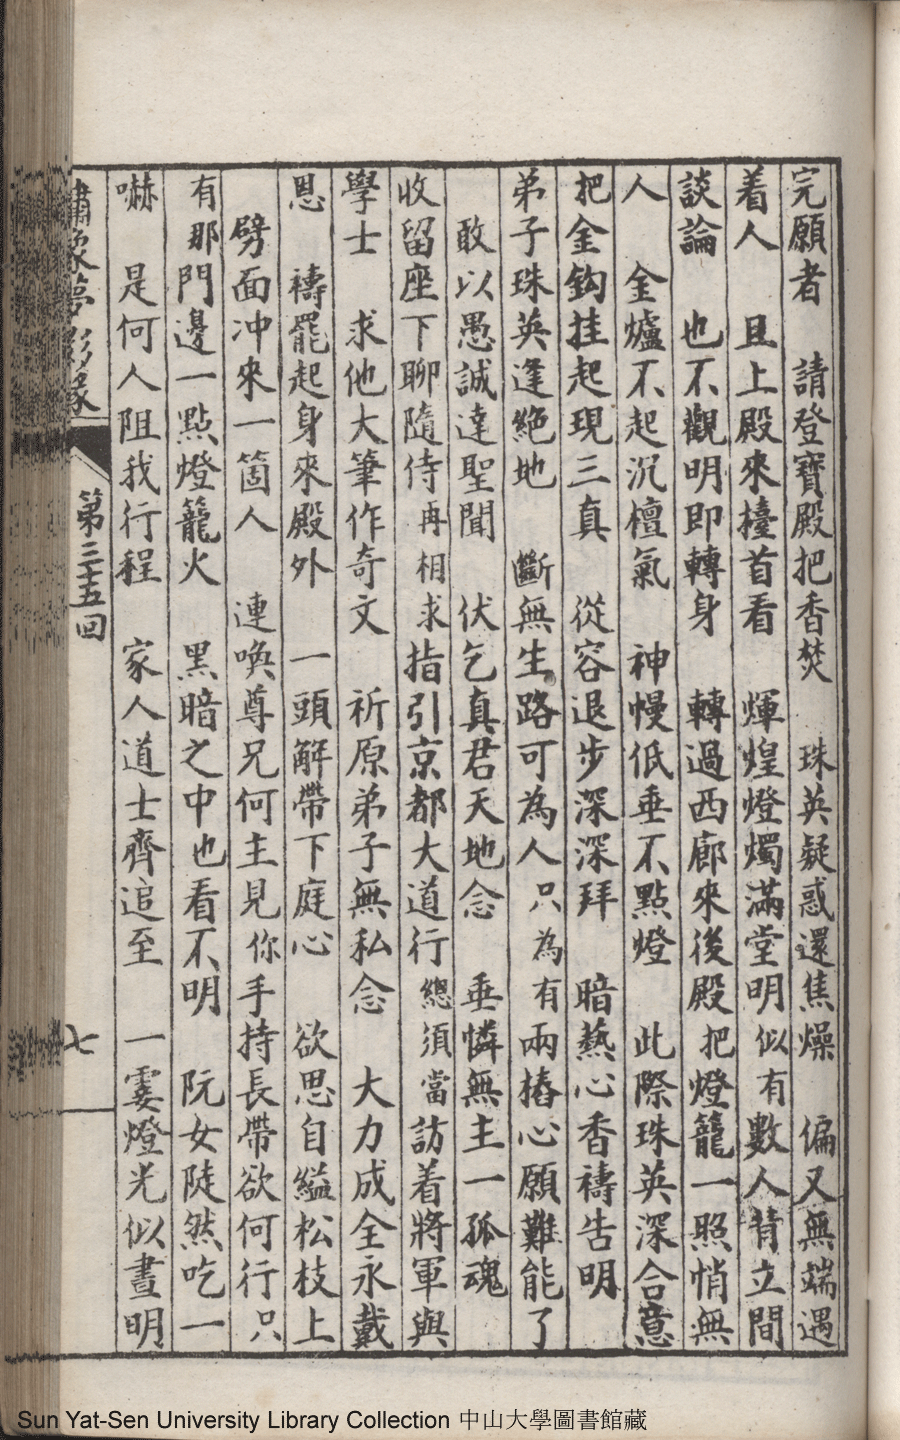 完願者　請登寶殿把香焚　珠英疑惑還焦燥　偏又無端遇
着人　且上殿來擡首看　煇煌燈燭滿堂明　似有數人背立間
談論　也不觀明即轉身　轉過西廊來後殿　把燈籠一照悄無
人　金爐不起沉檀氣　神幔低垂不點燈　此際珠英深合意
把金鈎挂起現三真　從容退步深深拜　暗熱心香禱告明
弟子珠英逢絶地　斷無生路可為人　只為有兩樁心願難能了
敢以愚誠達聖聞　伏乞真君天地念　垂憐無主一孤魂
收留座下聊隨侍　再相求指引京都大道行　總須當訪着將軍與
學士　求他大筆作奇文　祈原弟子無私念　大力成全永戴
恩　禱罷起身來殿外　一頭解帶下庭心　欲思自縊松枝上
劈面冲來一箇人　連喚尊兄何主見　你手持長帶欲何行　只
有那門邊一點燈籠火　黑暗之中也看不明　阮女陡然吃一
嚇　是何人阻我行程　家人道士齊追至　一霎燈光似晝明
第三十五回
七
Sun Yat-Sen University Library Collection 中山大學圖書館藏